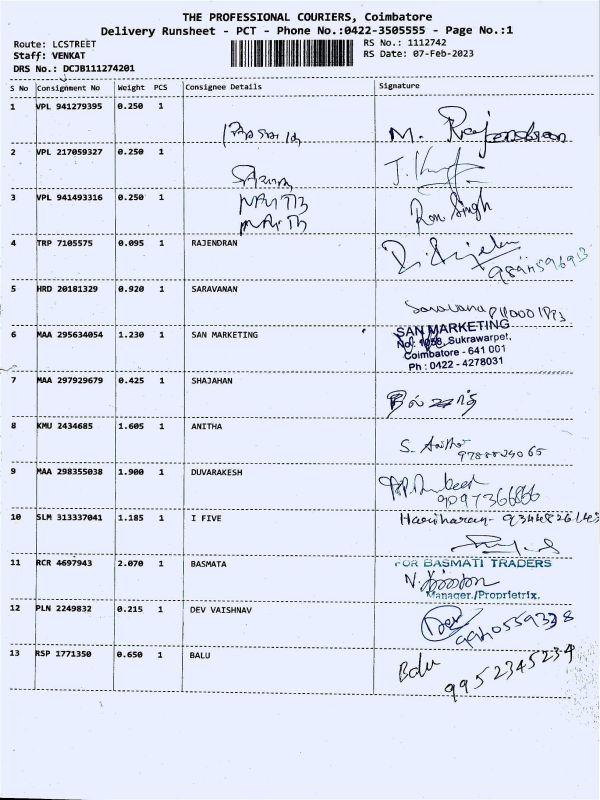 THE PROFESSIONAL COURIERS, Coimbatore
Delivery Runsheet - PCT - Phone No.:0422-3505555 - Page No.:1
Route: LCSTREET
RS No.: 1112742
Staff: VENKAT
RS Date: 07-Feb-2023
DRS No.: DCJB111274201
S No Consignment No Weight PCS Consignee Details Signature
1 VPL 941279395 0.250 1
M. Rajendran
2 VPL 217059327 0.250 1
3 VPL 941493316 0.250 1
Ram Singh
4 TRP 7105575 0.095 1 RAJENDRAN
5 HRD 20181329 0.920 1 SARAVANAN
6 MAA 295634054 1.230 1 SAN MARKETING
SAN MARKETING
No: 1058, Sukrawarpet,
Coimbatore - 641 001
Ph : 0422 - 4278031
7 MAA 297929679 0.425 1 SHAJAHAN
8 KMU 2434685 1.605 1 ANITHA
S. Anitha
9 MAA 298355038 1.900 1 DUVARAKESH
9097366866
10 SLM 313337041 1.185 1 I FIVE
Hariharan -
11 RCR 4697943 2.070 1 BASMATA
FOR BASMATI TRADERS
Manager./Proprietrix.
12 PLN 2249832 0.215 1 DEV VAISHNAV
Dev
13 RSP 1771350 0.650 1 BALU
Balu
9952345234